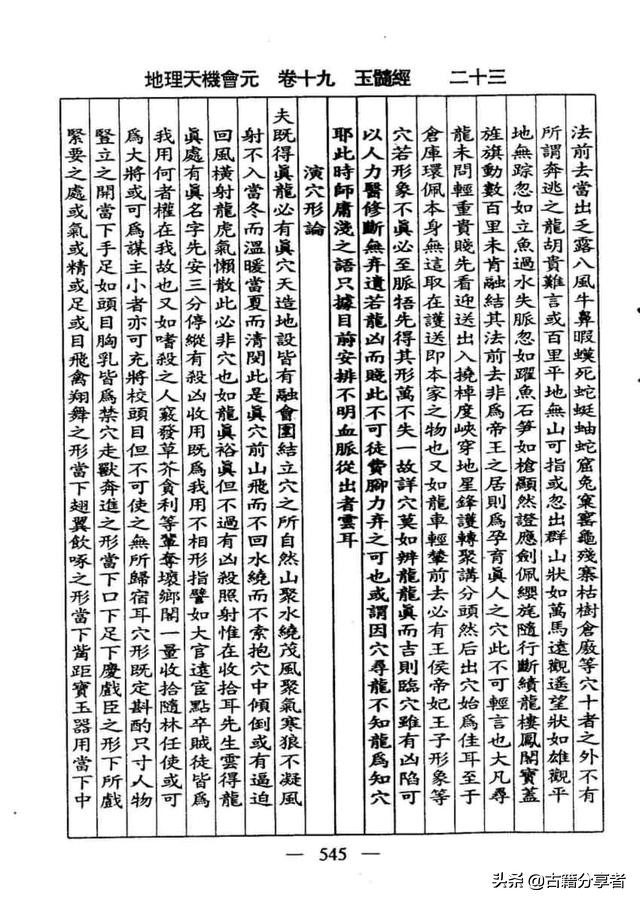 地理天機會元　卷十九　玉髓經　　二十三
法前去當出之露八風牛鼻暇蟆死蛇蜓蚰蛇窟兔窠窰龜殘寨枯樹倉廒等穴十者之外不有
所謂奔逃之龍胡貴難言或百里平地無山可指或忽出群山狀如萬馬遠觀遙望狀如雄觀平
地無踪忽如立魚過水失脈忽如躍魚石笋如槍顯然證應劍佩纓旄隨行斷續龍樓鳳閣寶蓋
旌旗動數百里未肯融結其法前去非爲帝王之居則爲孕育眞人之穴此不可輕言也大凡尋
龍未問輕重貴賤先看迎送出入撓棹度峽穿地星鋒護轉聚講分頭然后出穴始爲佳耳至于
倉庫環佩本身無這取在護送即本家之物也又如龍車輕輦前去必有王侯帝妃王子形象等
穴若形象不眞必至脈牾先得其形萬不失一故詳穴莫如辨龍龍眞而吉則臨穴雖有凶陷可
以人力醫修斷無弃遺若龍凶而賤此不可徒費腳力弃之可也或謂因穴尋龍不知龍爲知穴
耶此時師庸淺之語只據目前安排不明血脈從出者雲耳
演穴形論
夫既得眞龍必有眞穴天造地設皆有融會團結立穴之所自然山聚水繞茂風聚氣寒狼不凝風
射不入當冬而溫暖當夏而清閴此是眞穴前山飛而不回水繞而不索抱穴中傾倒或有逼迫
回風橫射龍虎氣懶散此必非穴也如龍眞裕眞但不過有凶殺照射惟在收拾耳先生雲得龍
眞處有眞名字先安三分停縱有殺凶收用既爲我用不相形指譬如大官遠宦點卒賊徒皆爲
我用何者權在我故也又如嗜殺之人竅發草芥貪利等輩奪壞鄉閣一量收拾隨林任使或可
爲大將或可爲謀主小者亦可充將校頭目但不可使之無所歸宿耳穴形既定斟酌尺寸人物
竪立之開當下手足如頭目胸乳皆爲禁穴走獸奔進之形當下口下足下慶戲臣之形下所戲
緊要之處或氣或精或足或目飛禽翔舞之形當下翅翼飲啄之形當下觜距寶玉器用當下中
— 545 —
头条 @古籍分享者